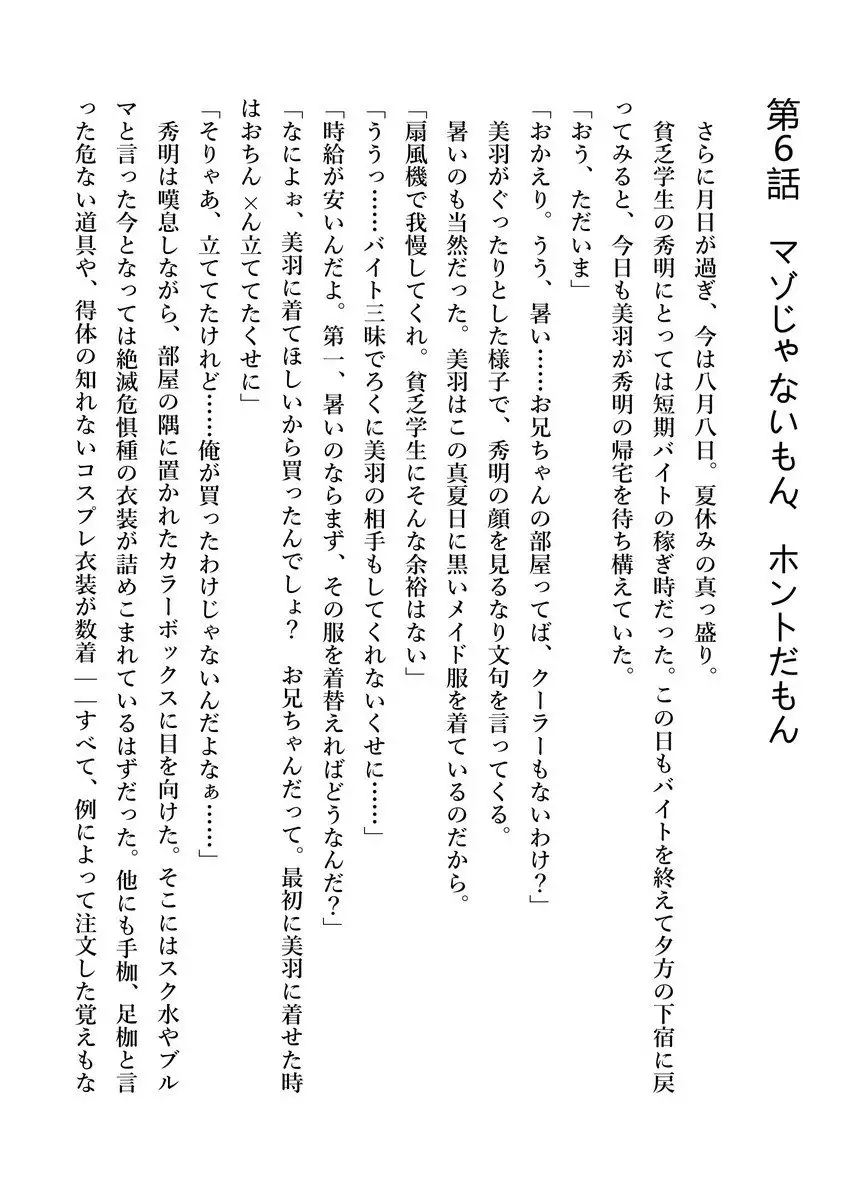 第6話　マゾじゃないもん、ホントだもん
さらに月日が過ぎ、今は八月八日。夏休みの真っ盛り。
貧乏学生の秀明にとっては短期バイトの稼ぎ時だった。この日もバイトを終えて夕方の下宿に戻
ってみると、今日も美羽が秀明の帰宅を待ち構えていた。
「おう、ただいま」
「おかえり。うう、暑い……お兄ちゃんの部屋ってば、クーラーもないわけ？」
美羽がぐったりとした様子で、秀明の顔を見るなり文句を言ってくる。
暑いのも当然だった。美羽はこの真夏日に黒いメイド服を着ているのだから。
「扇風機で我慢してくれ。貧乏学生にそんな余裕はない」
「ううっ……バイト三昧でろくに美羽の相手もしてくれないくせに……」
「時給が安いんだよ。第一、暑いのならまず、その服を着替えればどうなんだ？」
「なによぉ、美羽に着てほしいから買ったんでしょ？　お兄ちゃんだって。最初に美羽に着せた時
はおちん×ん立ててたくせに」
「そりゃあ、立ててたけれど……俺が買ったわけじゃないんだよなぁ……」
秀明は嘆息しながら、部屋の隅に置かれたカラーボックスに目を向けた。そこにはスク水やブル
マと言った今となっては絶滅危惧種の衣装が詰めこまれているはずだった。他にも手枷、足枷と言
った危ない道具や、得体の知れないコスプレ衣装が数着――すべて、例によって注文した覚えもな